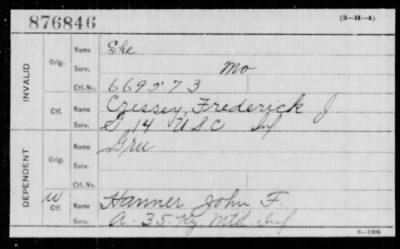 876846 (3-H-4)
INVALID
Orig.
Name She
Serv. Mo
Ctf. No. 669573
Ctf.
Name Cressey, Frederick J
Serv. G 14 USC Inf
DEPENDENT
Orig.
Name Gru
Serv.
Ctf. No.
W
Ctf.
Name Hanner John F.
Serv. A. 35 Ky Mtd Inf